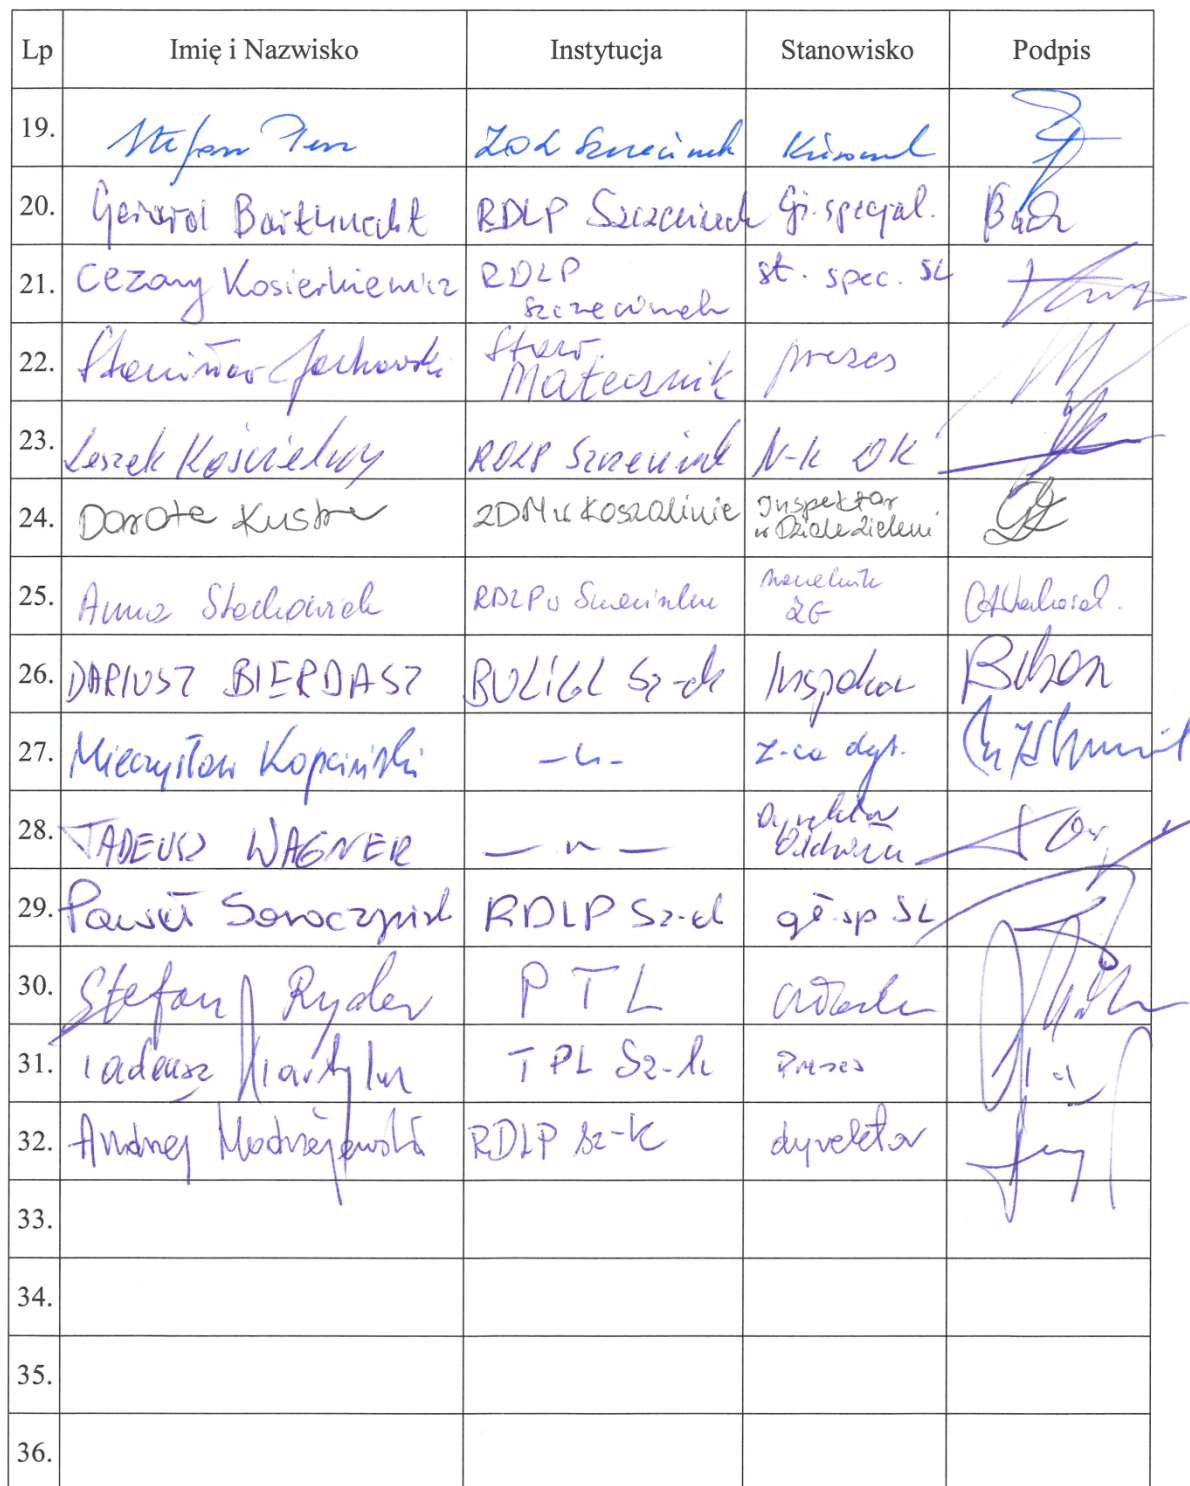 Lp Imię i Nazwisko Instytucja Stanowisko Podpis
19. Stefan ZOL Szczecinek
20. Gerard Bartknecht RDLP Szczecinek Gł. specjal.
21. Cezary Kosierkiewicz RDLP Szczecinek st. spec. SL
22. Stanisław Jachowski Stow. Matecznik prezes
23. Leszek Kościelny RDLP Szczecinek N-k
24. Dorota ZDM w Koszalinie Inspektor w Dziale Zieleni
25. Anna Stachowiak RDLP w Szczecinku naczelnik
26. DARIUSZ BIERDASZ BULiGL Sz-ek Inspektor
27. Mieczysław Kopciński -"- z-ca dyr.
28. TADEUSZ WAGNER -"- Dyrektor Oddziału
29. Paweł RDLP Sz-ek gł. sp SL
30. Stefan Ryder PTL członek
31. Tadeusz TPL Sz-k Prezes
32. Andrzej Modrzejewski RDLP Sz-k dyrektor
33.
34.
35.
36.